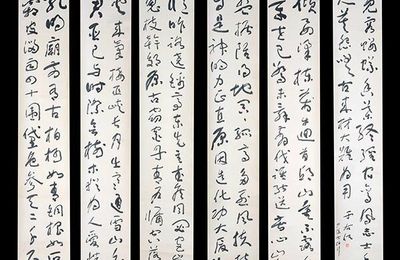 孔明廟前有古柏柯如青銅根如石
霜皮溜雨四十圍黛色參天二千尺
雲來氣接巫峽長月出寒通雪山白
君臣已与時際會樹木猶為人愛惜
憶昨路繞錦亭東先主武侯同閟宮崔
嵬枝幹郊原古窈窕丹青戶牖空落
落盤踞雖得地冥冥孤高多烈風扶持
自是神明力正直原因造化功大廈如
傾要梁棟萬牛回首丘山重不露文
章世已驚未辭翦伐誰能送苦心豈
免容螻蟻香葉終經宿鸞鳳志士幽
人莫怨嗟古來材大難為用 于右任